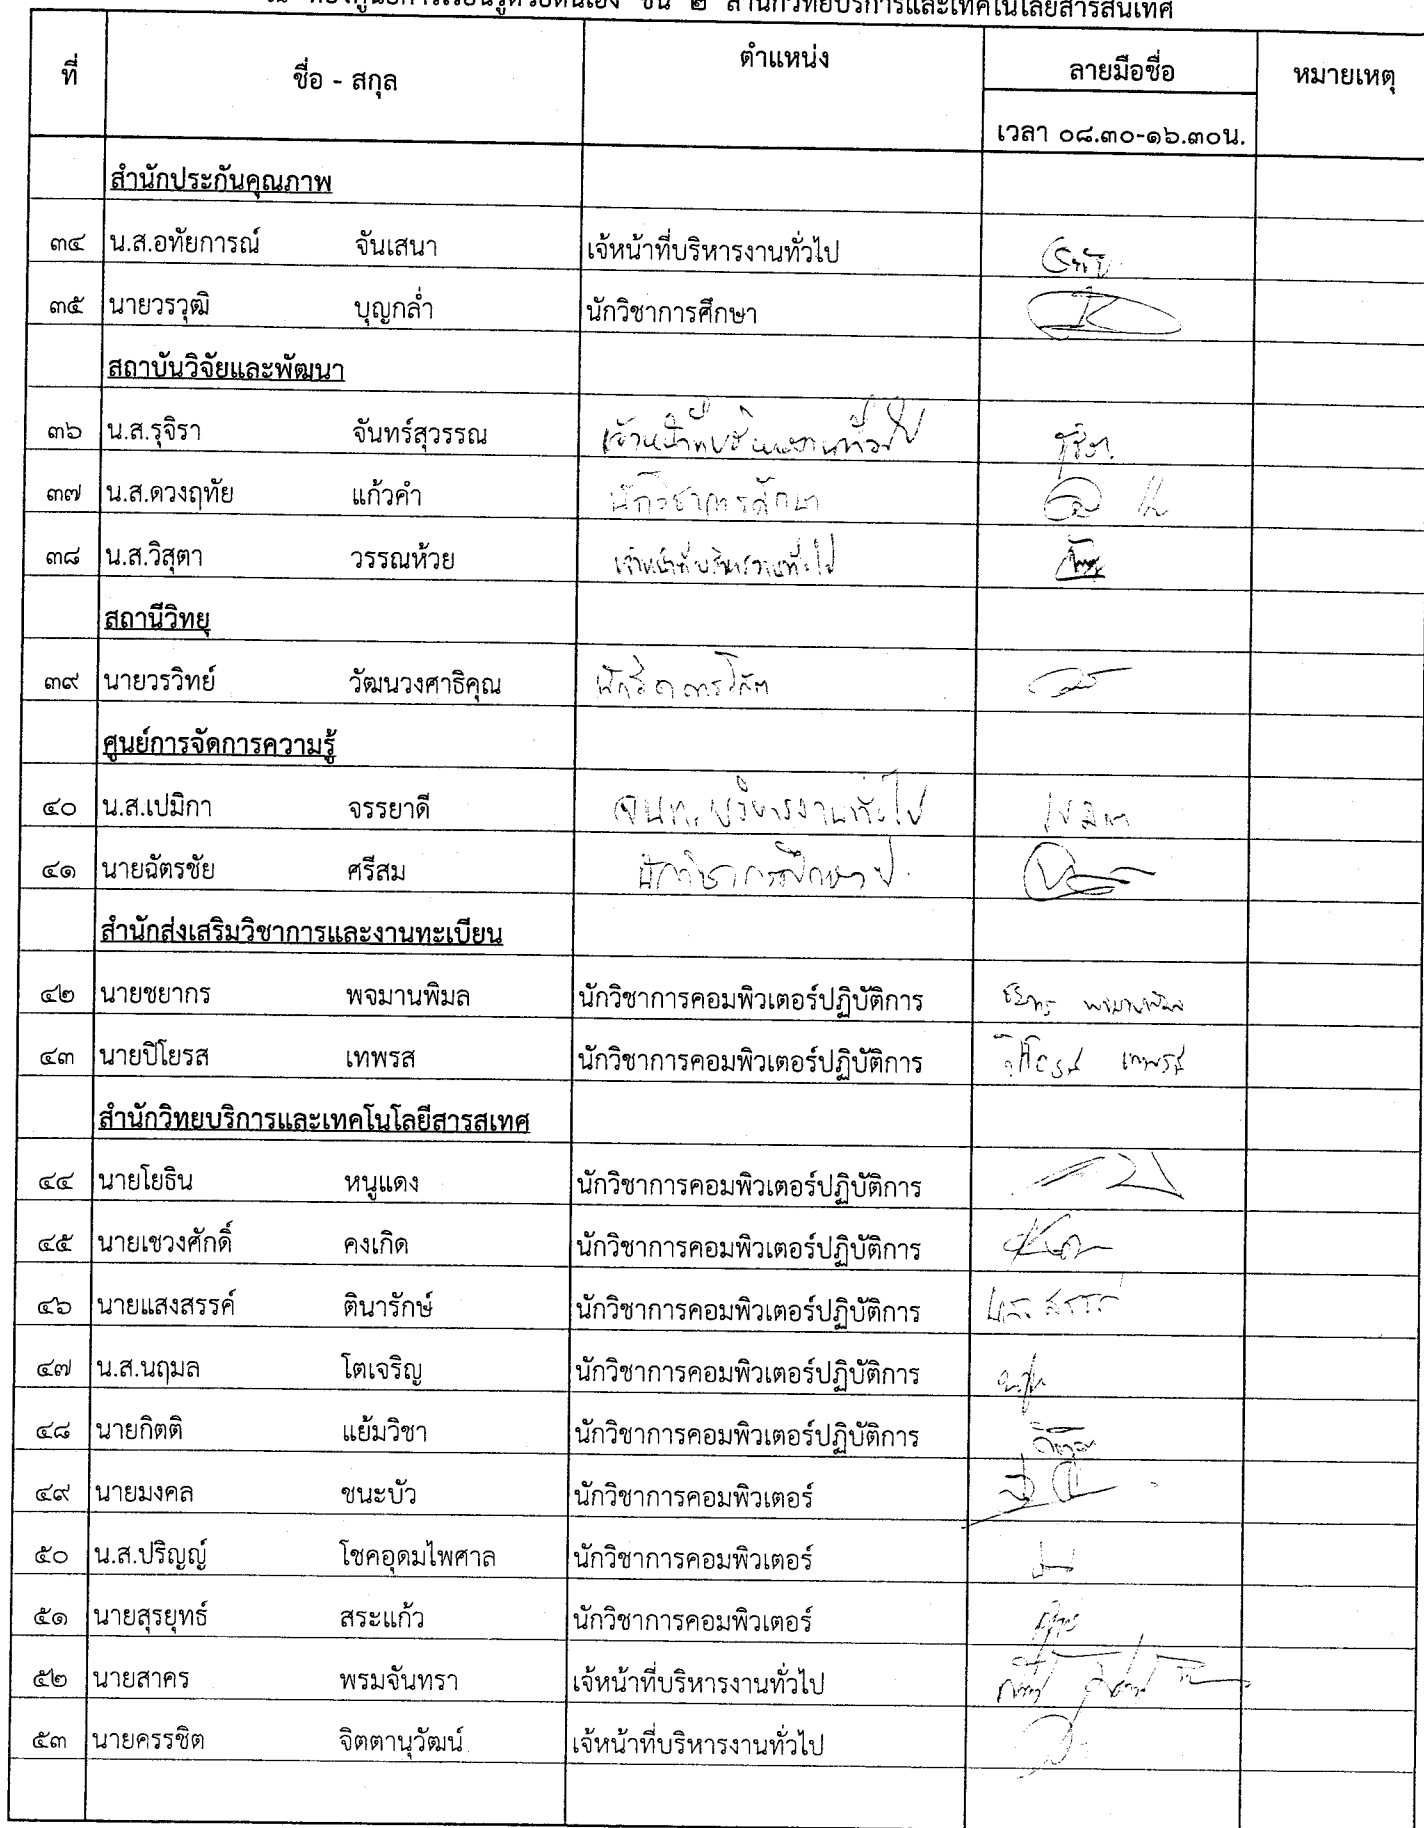 ณ ห้องศูนย์การเรียนรู้ด้วยตนเอง ชั้น ๒ สำนักวิทยบริการและเทคโนโลยีสารสนเทศ
ที่ ชื่อ - สกุล ตำแหน่ง ลายมือชื่อ หมายเหตุ
เวลา ๐๘.๓๐-๑๖.๓๐น.
สำนักประกันคุณภาพ
๓๔ น.ส.อทัยการณ์ จันเสนา เจ้หน้าที่บริหารงานทั่วไป
๓๕ นายวรวุฒิ บุญกล่ำ นักวิชาการศึกษา
สถาบันวิจัยและพัฒนา
๓๖ น.ส.รุจิรา จันทร์สุวรรณ เจ้าหน้าที่บริหารงานทั่วไป รุจิรา
๓๗ น.ส.ดวงฤทัย แก้วคำ นักวิชาการศึกษา
๓๘ น.ส.วิสุตา วรรณห้วย เจ้าหน้าที่บริหารงานทั่วไป
สถานีวิทยุ
๓๙ นายวรวิทย์ วัฒนวงศาธิคุณ
ศูนย์การจัดการความรู้
๔๐ น.ส.เปมิกา จรรยาดี จนท. บริหารงานทั่วไป เปมิกา
๔๑ นายฉัตรชัย ศรีสม นักวิชาการศึกษา
สำนักส่งเสริมวิชาการและงานทะเบียน
๔๒ นายชยากร พจมานพิมล นักวิชาการคอมพิวเตอร์ปฏิบัติการ ชยากร พจมานพิมล
๔๓ นายปิโยรส เทพรส นักวิชาการคอมพิวเตอร์ปฏิบัติการ ปิโยรส เทพรส
สำนักวิทยบริการและเทคโนโลยีสารสเทศ
๔๔ นายโยธิน หนูแดง นักวิชาการคอมพิวเตอร์ปฏิบัติการ
๔๕ นายเชวงศักดิ์ คงเกิด นักวิชาการคอมพิวเตอร์ปฏิบัติการ
๔๖ นายแสงสรรค์ ตินารักษ์ นักวิชาการคอมพิวเตอร์ปฏิบัติการ แสงสรรค์
๔๗ น.ส.นฤมล โตเจริญ นักวิชาการคอมพิวเตอร์ปฏิบัติการ
๔๘ นายกิตติ แย้มวิชา นักวิชาการคอมพิวเตอร์ปฏิบัติการ
๔๙ นายมงคล ชนะบัว นักวิชาการคอมพิวเตอร์
๕๐ น.ส.ปริญญ์ โชคอุดมไพศาล นักวิชาการคอมพิวเตอร์
๕๑ นายสุรยุทธ์ สระแก้ว นักวิชาการคอมพิวเตอร์
๕๒ นายสาคร พรมจันทรา เจ้หน้าที่บริหารงานทั่วไป
๕๓ นายครรชิต จิตตานุวัฒน์ เจ้หน้าที่บริหารงานทั่วไป